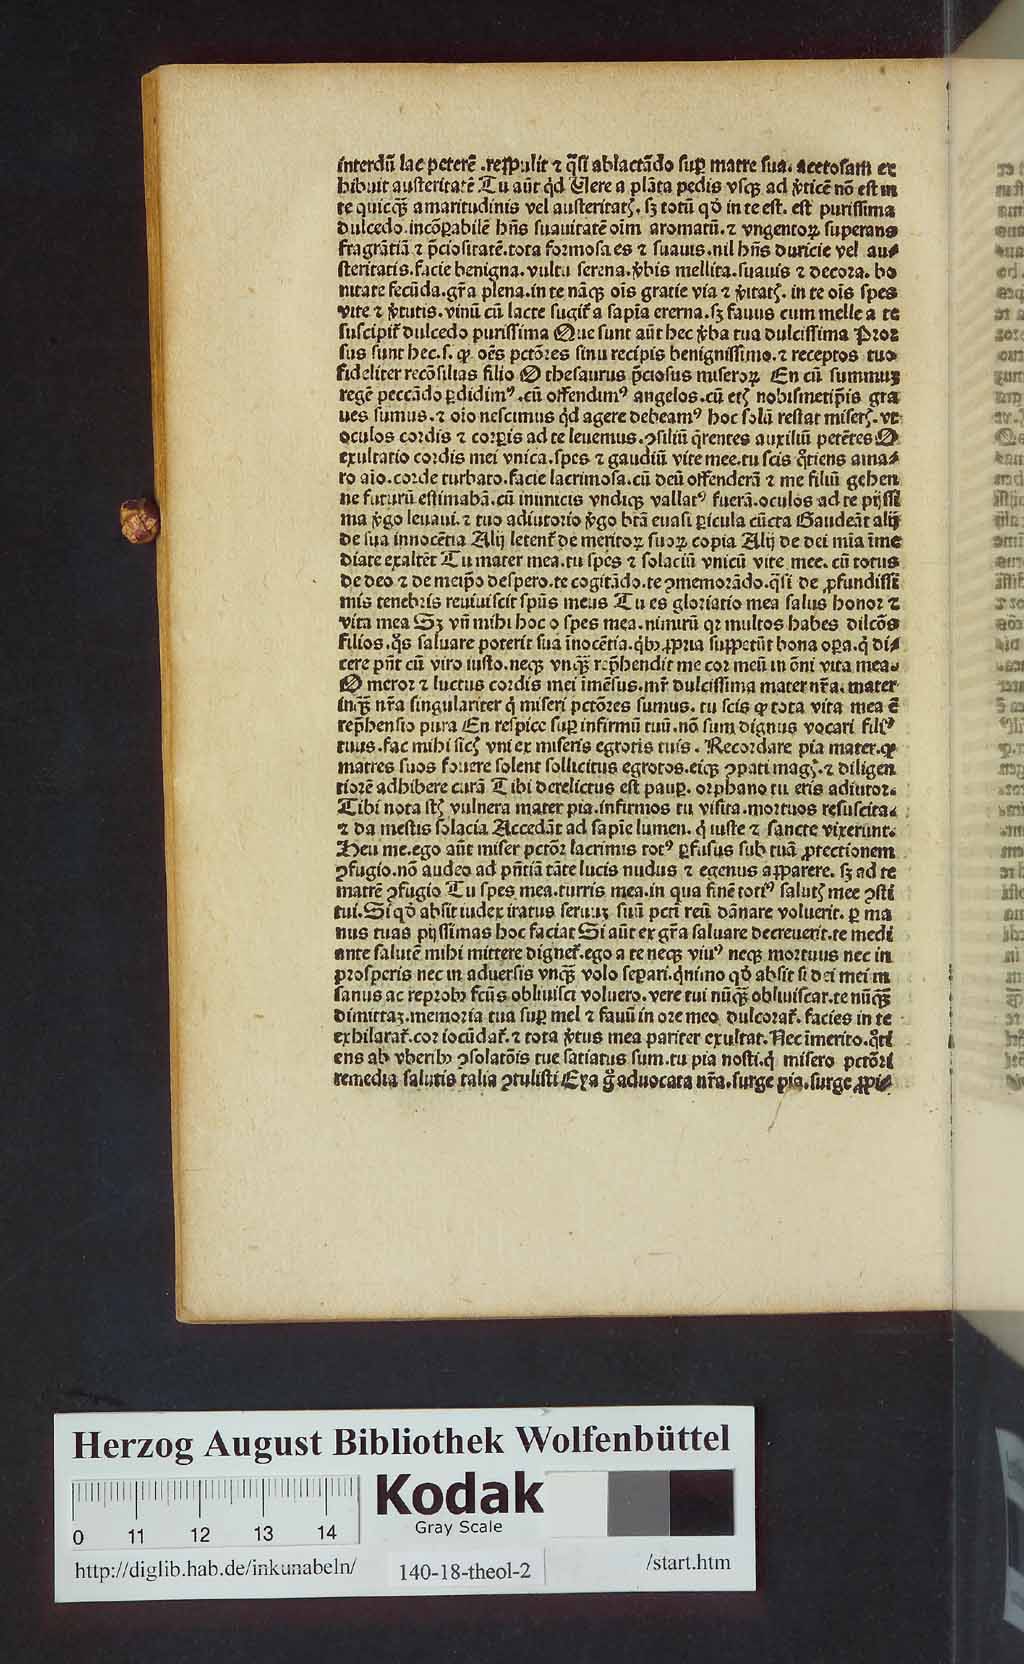 interdū lac peterē .reppulit ⁊ q̄si ablactādo suꝑ matre sua. acetosam ex
hibuit austeritatē Tu aūt qͥd Uere a plāta pedis vsqꝫ ad v̓ticē nō est in
te quicqꝫ amaritudinis vel austeritatꝭ. sꝫ totū qd̓ in te est. est purissima
dulcedo.incōꝑabilē hn̄s suauitatē oīm aromatū.⁊ vngentoꝝ superans
fragrātiā ⁊ p̄ciositatē.tota formosa es ⁊ suauis.nil hn̄s duricie vel au⸗
steritatis.facie benigna.vultu serena.v̓bis mellita.suauis ⁊ decora. bo
nitate fecūda.gr̄a plena.in te nāqꝫ oīs gratie via ⁊ v̓itatꝭ. in te oīs spes
vite ⁊ v̓tutis.vinū cū lacte sugit̄ a sapīa eterna.sꝫ fauus cum melle a te
suscipit̄ dulcedo purissima Que sunt aūt hec v̓ba tua dulcissima Pror
sus sunt hec.s. ꝙ oēs pctōres sinu recipis benignissimo.⁊ receptos tuo
fideliter recōsilias filio O thesaurus p̄ciosus miseroꝝ En cū summuꝫ
regē peccādo ꝑdidimꝰ .cū offendimꝰ angelos.cū etꝭ nobismetip̄is gra
ues sumus.⁊ oīo nescimus qͥd agere debeamꝰ hoc solū restat miserꝭ.vt
oculos cordis ⁊ corꝑis ad te leuemus.ↄsiliū q̄rentes auxiliū petētes O
exultatio cordis mei vnica.spes ⁊ gaudiū vite mee.tu scis qͦtiens ama⸗
ro aīo.corde turbato.facie lacrimosa.cū deū offenderā ⁊ me filiū gehen
ne futurū estimabā.cū inimicis vndiqꝫ vallatꝰ fuerā.oculos ad te pijssi
ma v̓go leuaui.⁊ tuo adiutorio v̓go btā euasi ꝑicula cūcta Gaudeāt alij
de sua innocētia Alij letent̄ de meritoꝝ suoꝝ copia Alij de dei mīa īme
diate exaltēt Tu mater mea.tu spes ⁊ solaciū vnicū vite mee. cū totus
de deo ⁊ de meip̄o despero.te cogitādo.te ↄmemorādo.q̄si de ꝓfundissi
mis tenebris reuiuiscit spūs meus Tu es gloriatio mea salus honor ⁊
vita mea Sꝫ vn̄ mihi hoc o spes mea.nimirū qꝛ multos habes dilcōs
filios.qͦs saluare poterit sua īnocētia.qͥbꝰ ꝓpria suppetūt bona oꝑa.qͥ di⸗
cere pn̄t cū viro iusto.neqꝫ vnqꝫ rep̄hendit me cor meū in ōni vita mea.
O meror ⁊ luctus cordis mei īmēsus.mr̄ dulcissima mater nr̄a. mater
inqꝫ nr̄a singulariter qͥ miseri pctōres sumus. tu scis ꝙ tota vita mea ē
rep̄hensio pura En respice suꝑ infirmū tuū.nō sum dignus vocari filiꝰ
tuus.fac mihi sicꝭ vni ex miseris egrotis tuis. Recordare pia mater.ꝙ
matres suos fouere solent sollicitus egrotos.eiqꝫ ↄpati magꝭ.⁊ diligen
tiorē adhibere curā Tibi derelictus est pauꝑ. orphano tu eris adiutor.
Tibi nota sūt vulnera mater pia.infirmos tu visita.mortuos resuscita.
⁊ da mestis solacia Accedāt ad sapīe lumen. qͥ iuste ⁊ sancte vixerunt.
Heu me.ego aūt miser pctōr lacrimis totꝰ ꝑfusus sub tuā ꝓtectionem
ↄfugio.nō audeo ad pn̄tiā tāte lucis nudus ⁊ egenus apparere. sꝫ ad te
matrē ↄfugio Tu spes mea.turris mea.in qua finē totiꝰ salutꝭ mee ↄsti
tui.Si qd̓ absit iudex iratus seruuꝫ suū pcti reū dānare voluerit. ꝑ ma
nus tuas pijssimas hoc faciat Si aūt ex gr̄a saluare decreuerit.te medi
ante salutē mihi mittere dignet̄.ego a te neqꝫ viuꝰ neqꝫ mortuus nec in
prosperis nec in aduersis vnqꝫ volo seꝑari.qͥnimo qd̓ absit si dei mei in
sanus ac reprobꝰ fcūs obliuisci voluero.vere tui nūqꝫ obliuiscar.te nūqꝫ
dimittaꝫ.memoria tua suꝑ mel ⁊ fauū in ore meo dulcorat̄. facies in te
exhilarat̄.cor iocūdat̄.⁊ tota v̓tus mea pariter exultat.Nec īmerito.qͦti
ens ab vberibꝰ ↄsolatōis tue satiatus sum.tu pia nosti.qͥ misero pctōri
remedia salutis talia ↄtulisti Eya g̊ aduocata nr̄a.surge pia.surge ꝓpi⸗
Herzog August Bibliothek Wolfenbüttel
0 11 12 13 14
Kodak
Gray Scale
http://diglib.hab.de/inkunabeln/ 140-18-theol-2 /start.htm